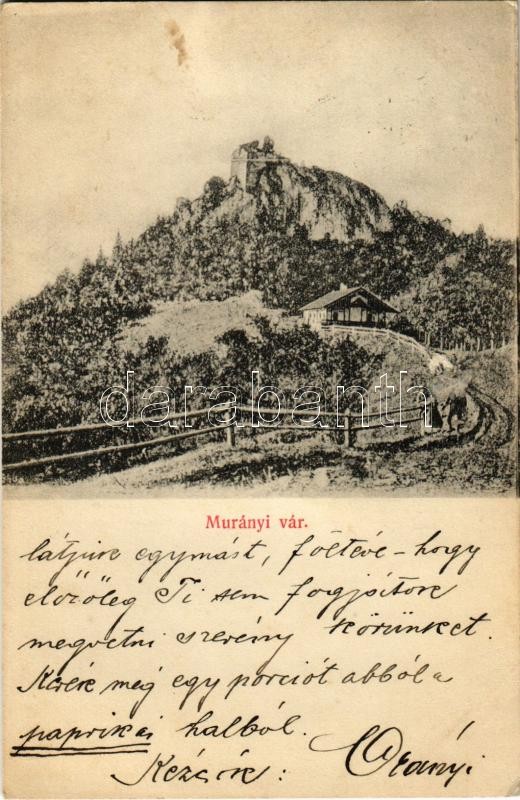 darabanth
Murányi vár.
látjuk egymást, föltéve - hogy
előzőleg Ti sem fogjátok
megvetni szerény körünket.
Kérek még egy porciót abból a
paprikás halból.
Kézcsók:
Arányi